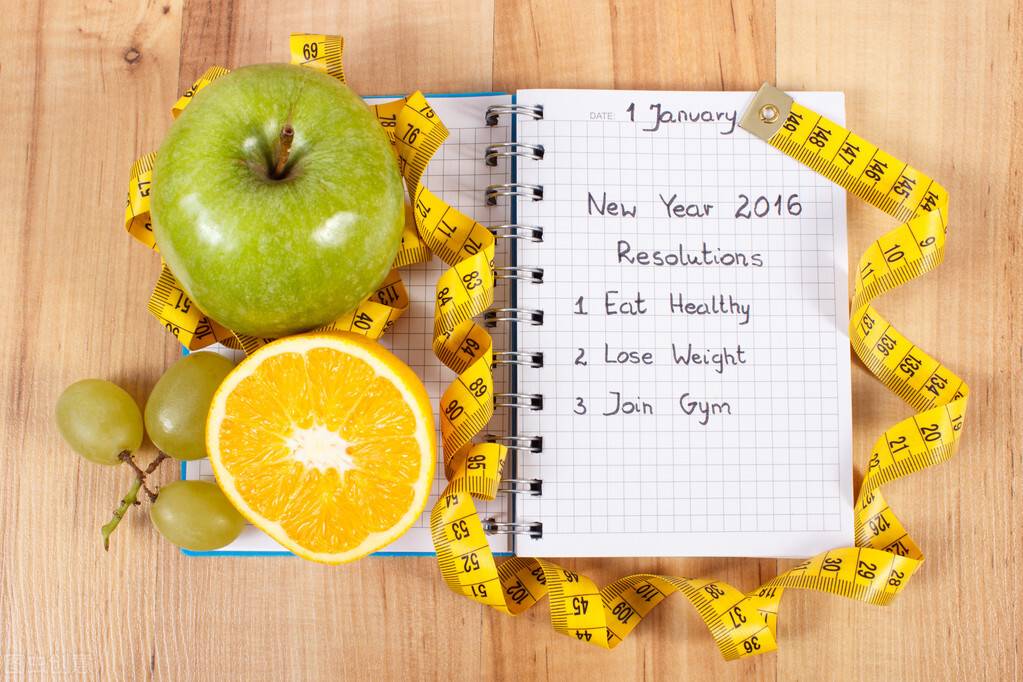 DATE: 1 January
New Year 2016
Resolutions
1 Eat Healthy
2 Lose Weight
3 Join Gym
69
78
76
75
72
71
70
83
84
64
89
90
95
54
53
52
51
102
103
46
45
44
109
110
38
37
36
118
30
29
28
126
22
21
20
134
135
136
137
11
10
9
144
145
146
147
148
149
113
40
51